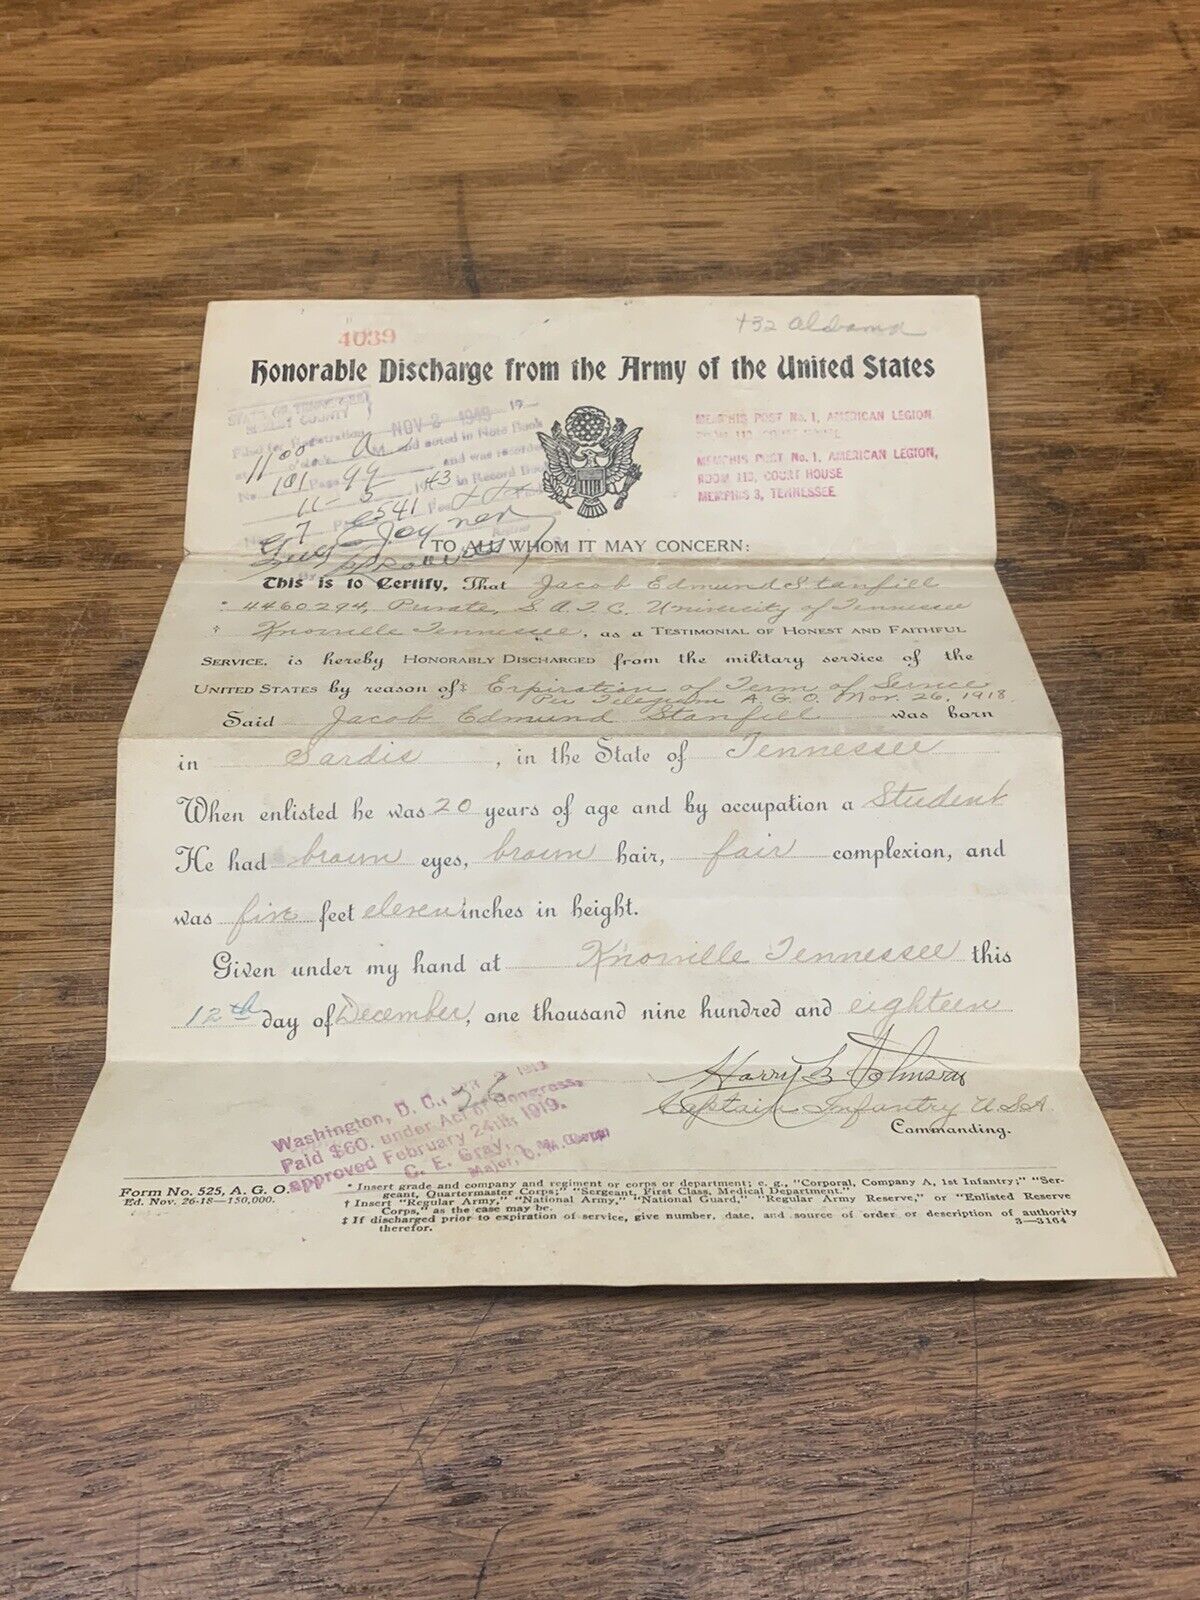 4039
432 Alabama
Honorable Discharge from the Army of the United States
STATE OF TENNESSEE
SHELBY COUNTY
Filed for Registration NOV 2 19
at 11:00 o'clock A M and noted in Note Book
No. 101 Page 99 and was recorded
11-5 1943 in Record Book
7 Page 541
Joyner
MEMPHIS POST No. 1, AMERICAN LEGION,
ROOM 113, COURT HOUSE
MEMPHIS POST No. 1, AMERICAN LEGION,
ROOM 113, COURT HOUSE
MEMPHIS 3, TENNESSEE
TO ALL WHOM IT MAY CONCERN:
This is to Certify, That Jacob Edmund Stanfill
* 4460294, Private, S.A.T.C. University of Tennessee
† Knoxville Tennessee, as a TESTIMONIAL OF HONEST AND FAITHFUL
SERVICE, is hereby HONORABLY DISCHARGED from the military service of the
UNITED STATES by reason of‡ Expiration of Term of Service
Per Telegram A.G.O. Nov. 26, 1918.
Said Jacob Edmund Stanfill was born
in Sardis, in the State of Tennessee
When enlisted he was 20 years of age and by occupation a Student
He had brown eyes, brown hair, fair complexion, and
was five feet eleven inches in height.
Given under my hand at Knoxville Tennessee this
12th day of December, one thousand nine hundred and eighteen
Harry B Johnson
Captain Infantry U.S.A.
Commanding.
Washington, D. C., 1919
Paid $60. under Act of Congress,
approved February 24th, 1919.
C. E. Gray,
Major, Q. M. Corps
Form No. 525, A. G. O.
Ed. Nov. 26-18—150,000.
* Insert grade and company and regiment or corps or department; e. g., "Corporal, Company A, 1st Infantry;" "Ser-
geant, Quartermaster Corps;" "Sergeant, First Class, Medical Department."
† Insert "Regular Army," "National Guard," "National Army," "Regular Army Reserve," or "Enlisted Reserve
Corps," as the case may be.
‡ If discharged prior to expiration of service, give number, date, and source of order or description of authority
therefor.
3—3164